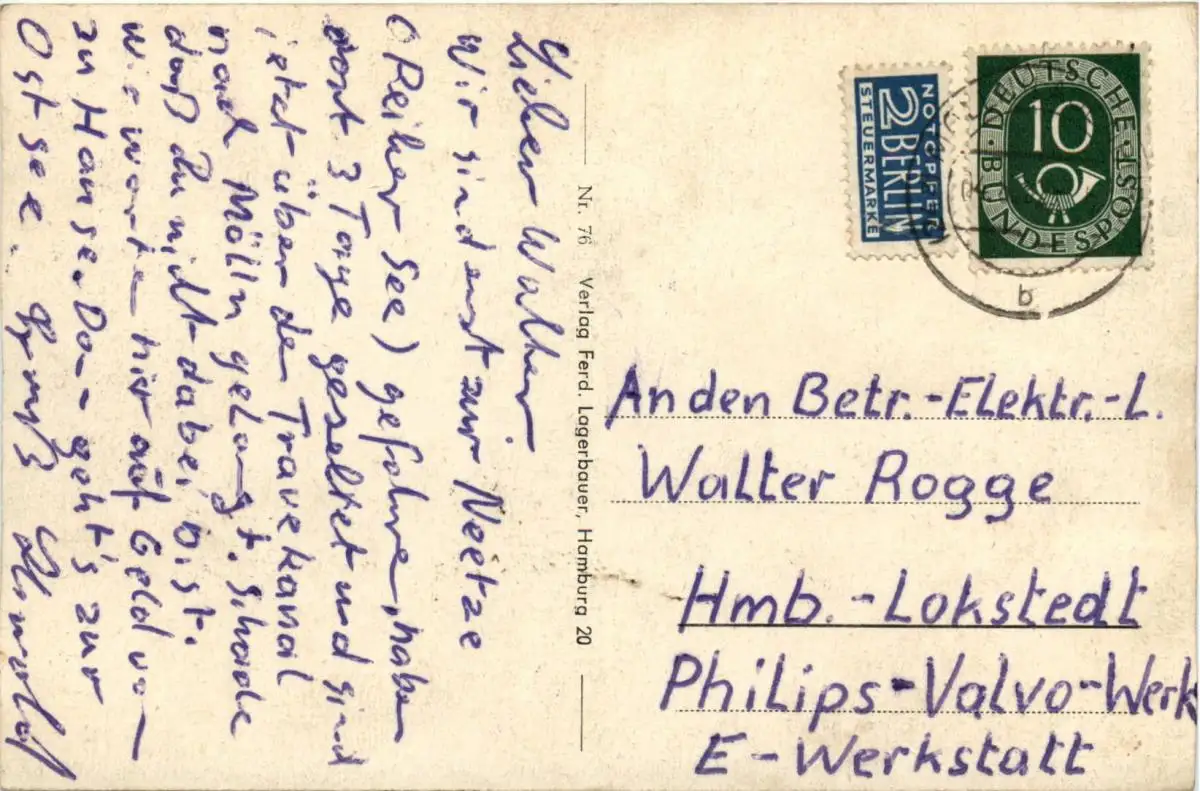 Lieber Walter
Wir sind erst zur Neetze
(Reiher See) gefahren, haben
dort 3 Tage gezeltet und sind
jetzt über den Travekanal
nach Mölln gelangt. Schade
daß Du nicht dabei bist.
Wir warten hier auf Geld von
zu Hause. Dann geht's zur
Ostsee. Gruß
Nr. 76 Verlag Ferd. Lagerbauer, Hamburg 20
NOTOPFER
2 BERLIN
STEUERMARKE
DEUTSCHE BUNDESPOST
10
b
An den Betr.-Elektr.-L.
Walter Rogge
Hmb.-Lokstedt
Philips-Valvo-Werk
E-Werkstatt